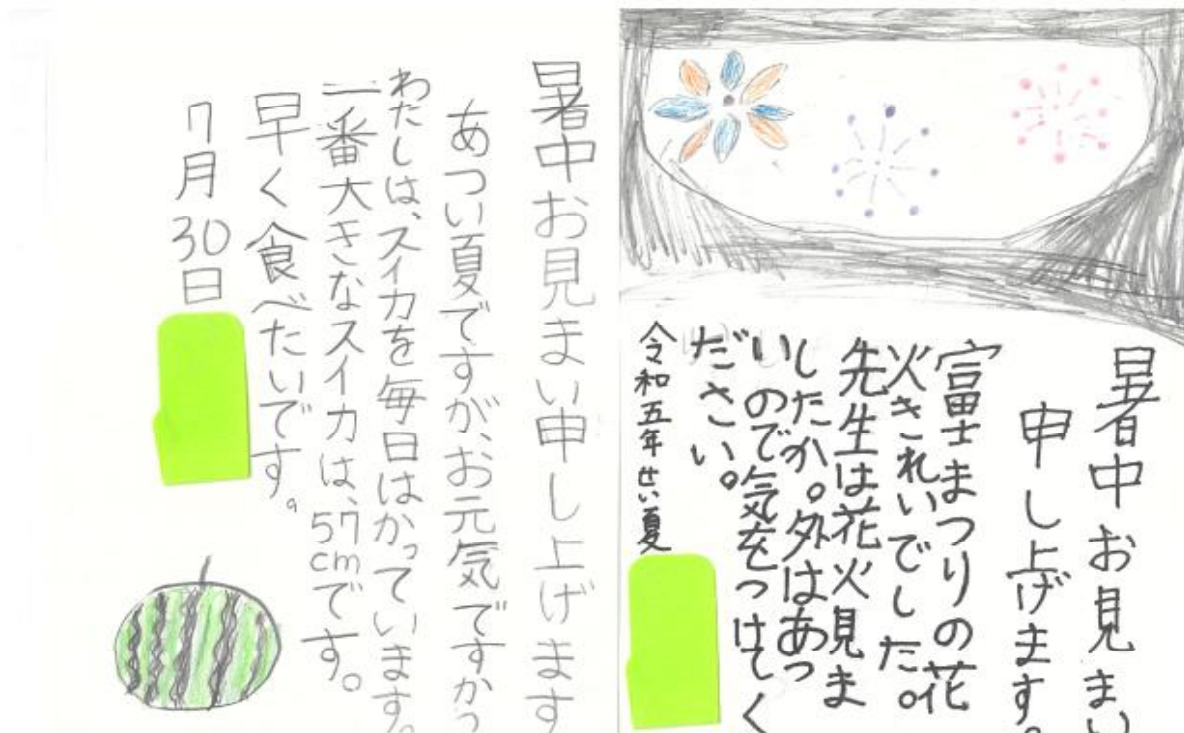 暑中お見まい
申し上げます。
富士まつりの花
火きれいでした。
先生は花火見ま
したか。外はあっ
いので気をつけてく
ださい。
令和五年せい夏
暑中お見まい申し上げます
あつい夏ですが、お元気ですか
わたしは、スイカを毎日はかっています。
一番大きなスイカは、57cmです。
早く食べたいです。
7月30日